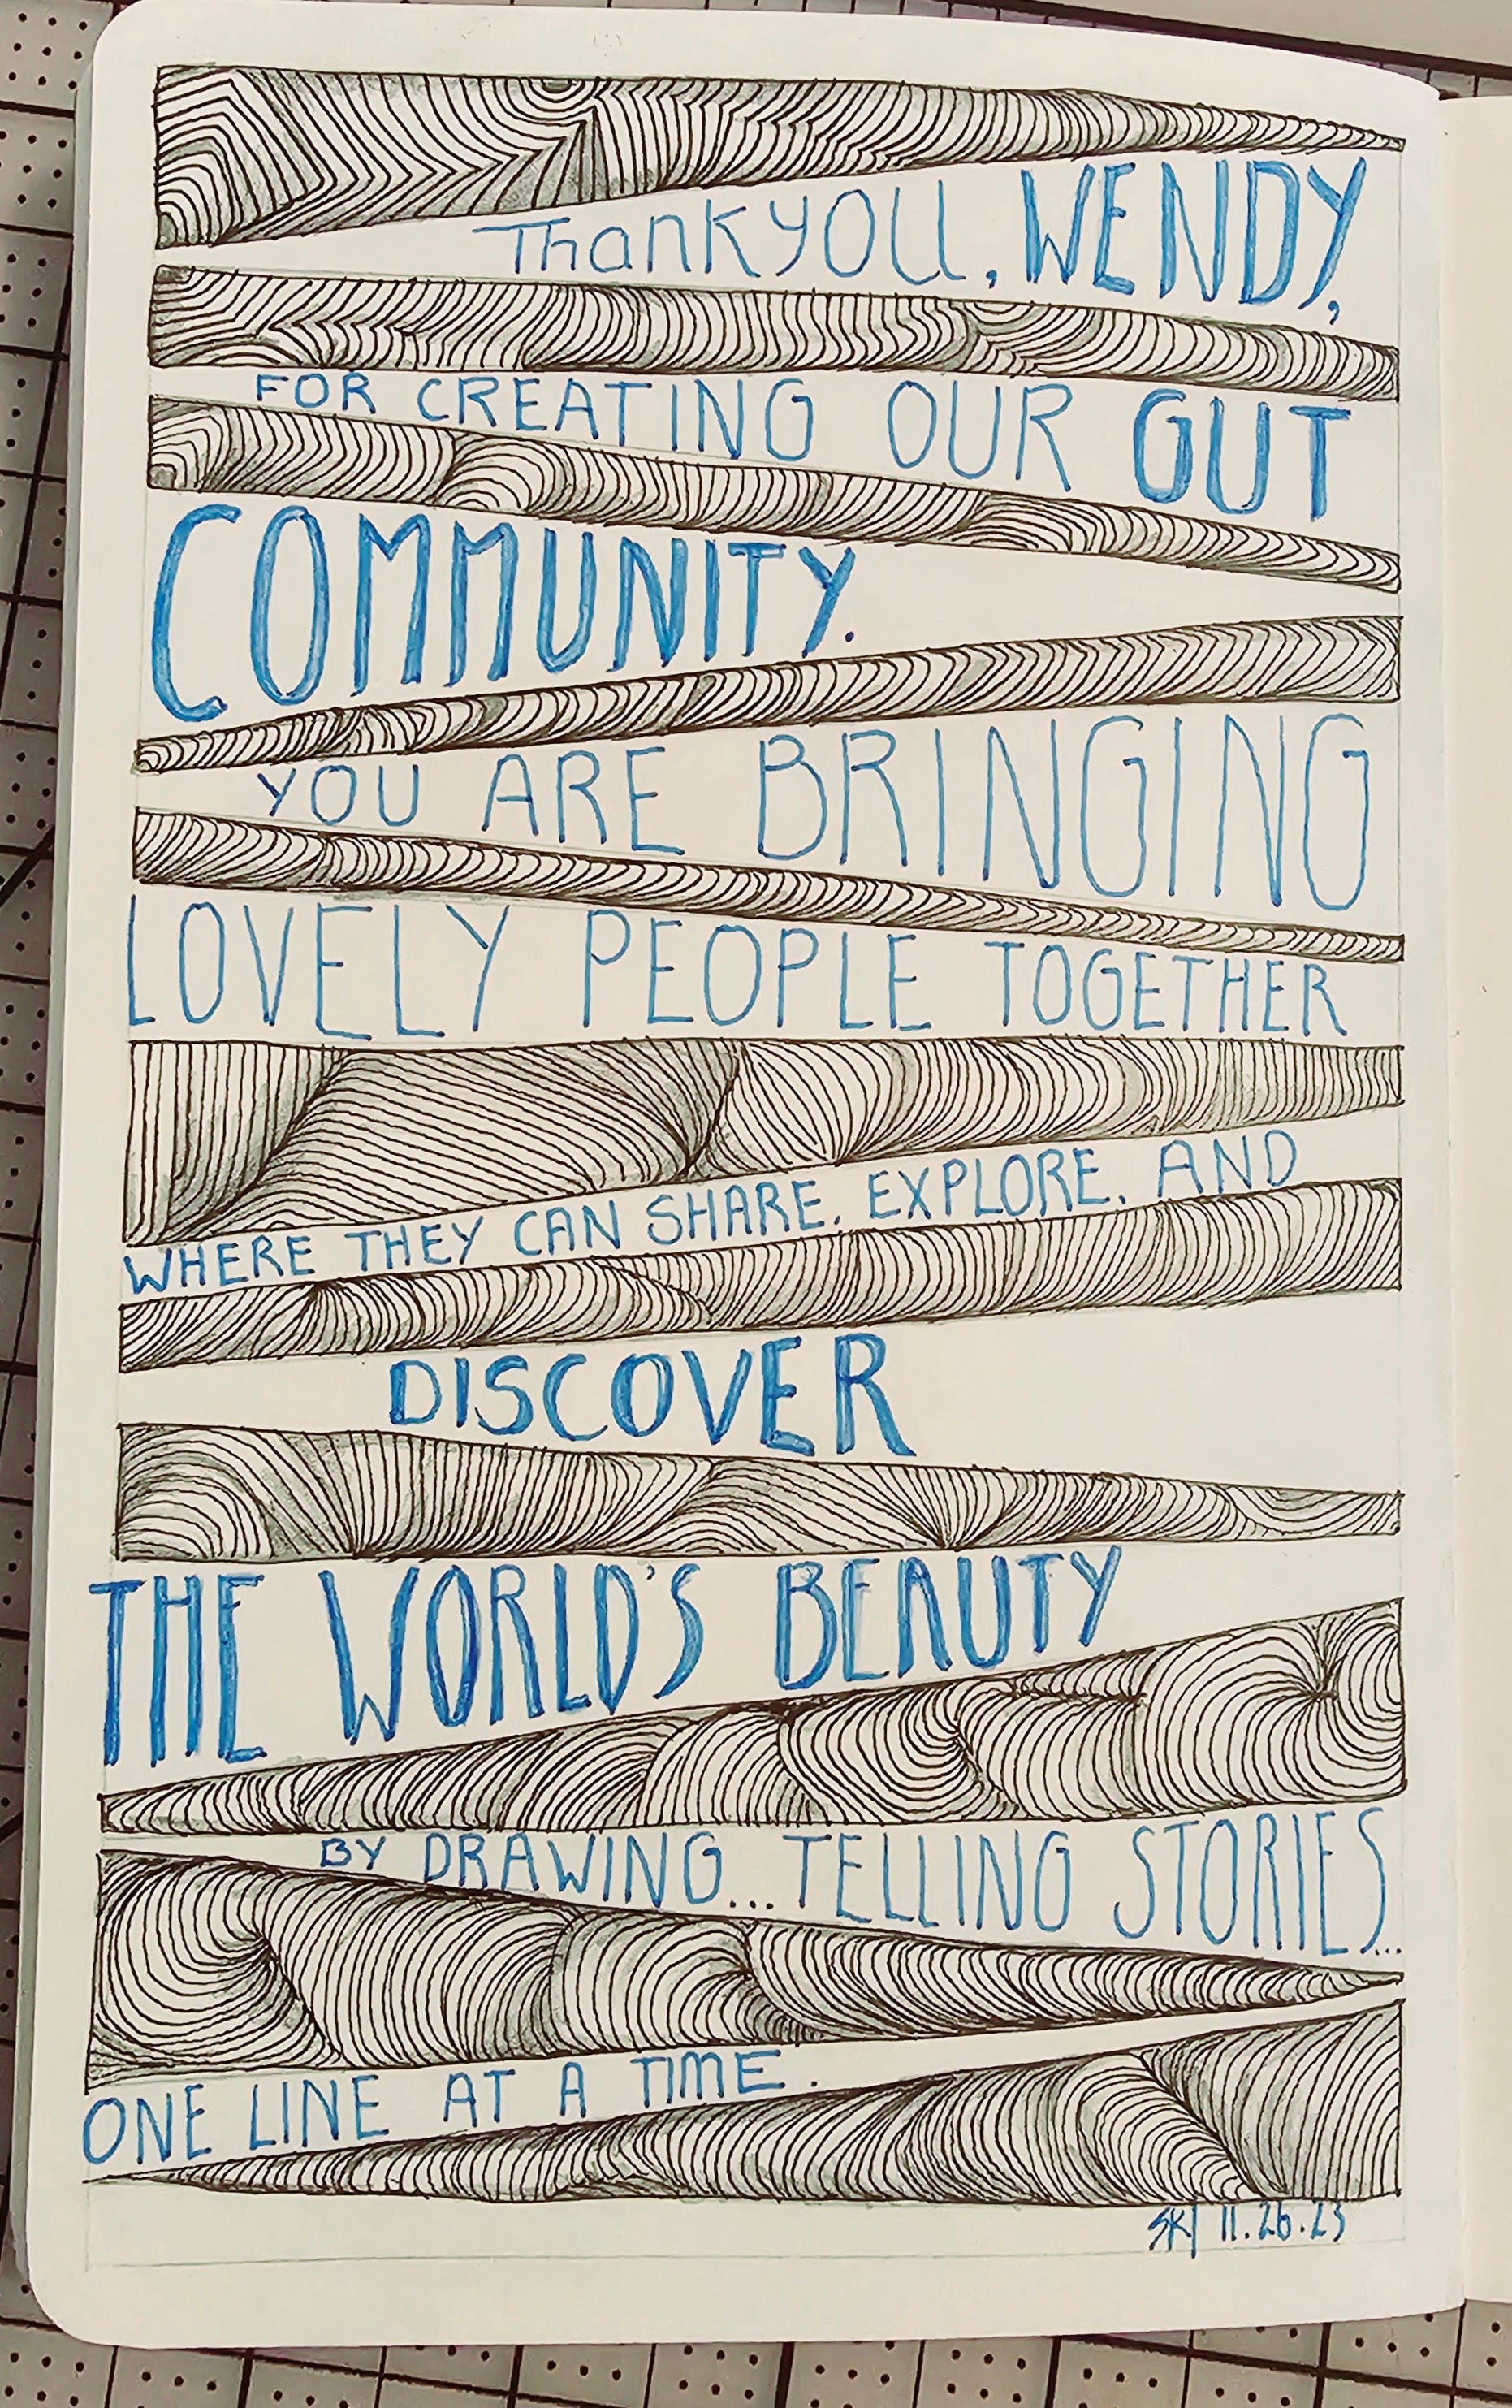 Thank you, WENDY,
FOR CREATING OUR GUT
COMMUNITY.
YOU ARE BRINGING
LOVELY PEOPLE TOGETHER
WHERE THEY CAN SHARE, EXPLORE, AND
DISCOVER
THE WORLD'S BEAUTY
BY DRAWING... TELLING STORIES...
ONE LINE AT A TIME.
SK 11.26.23